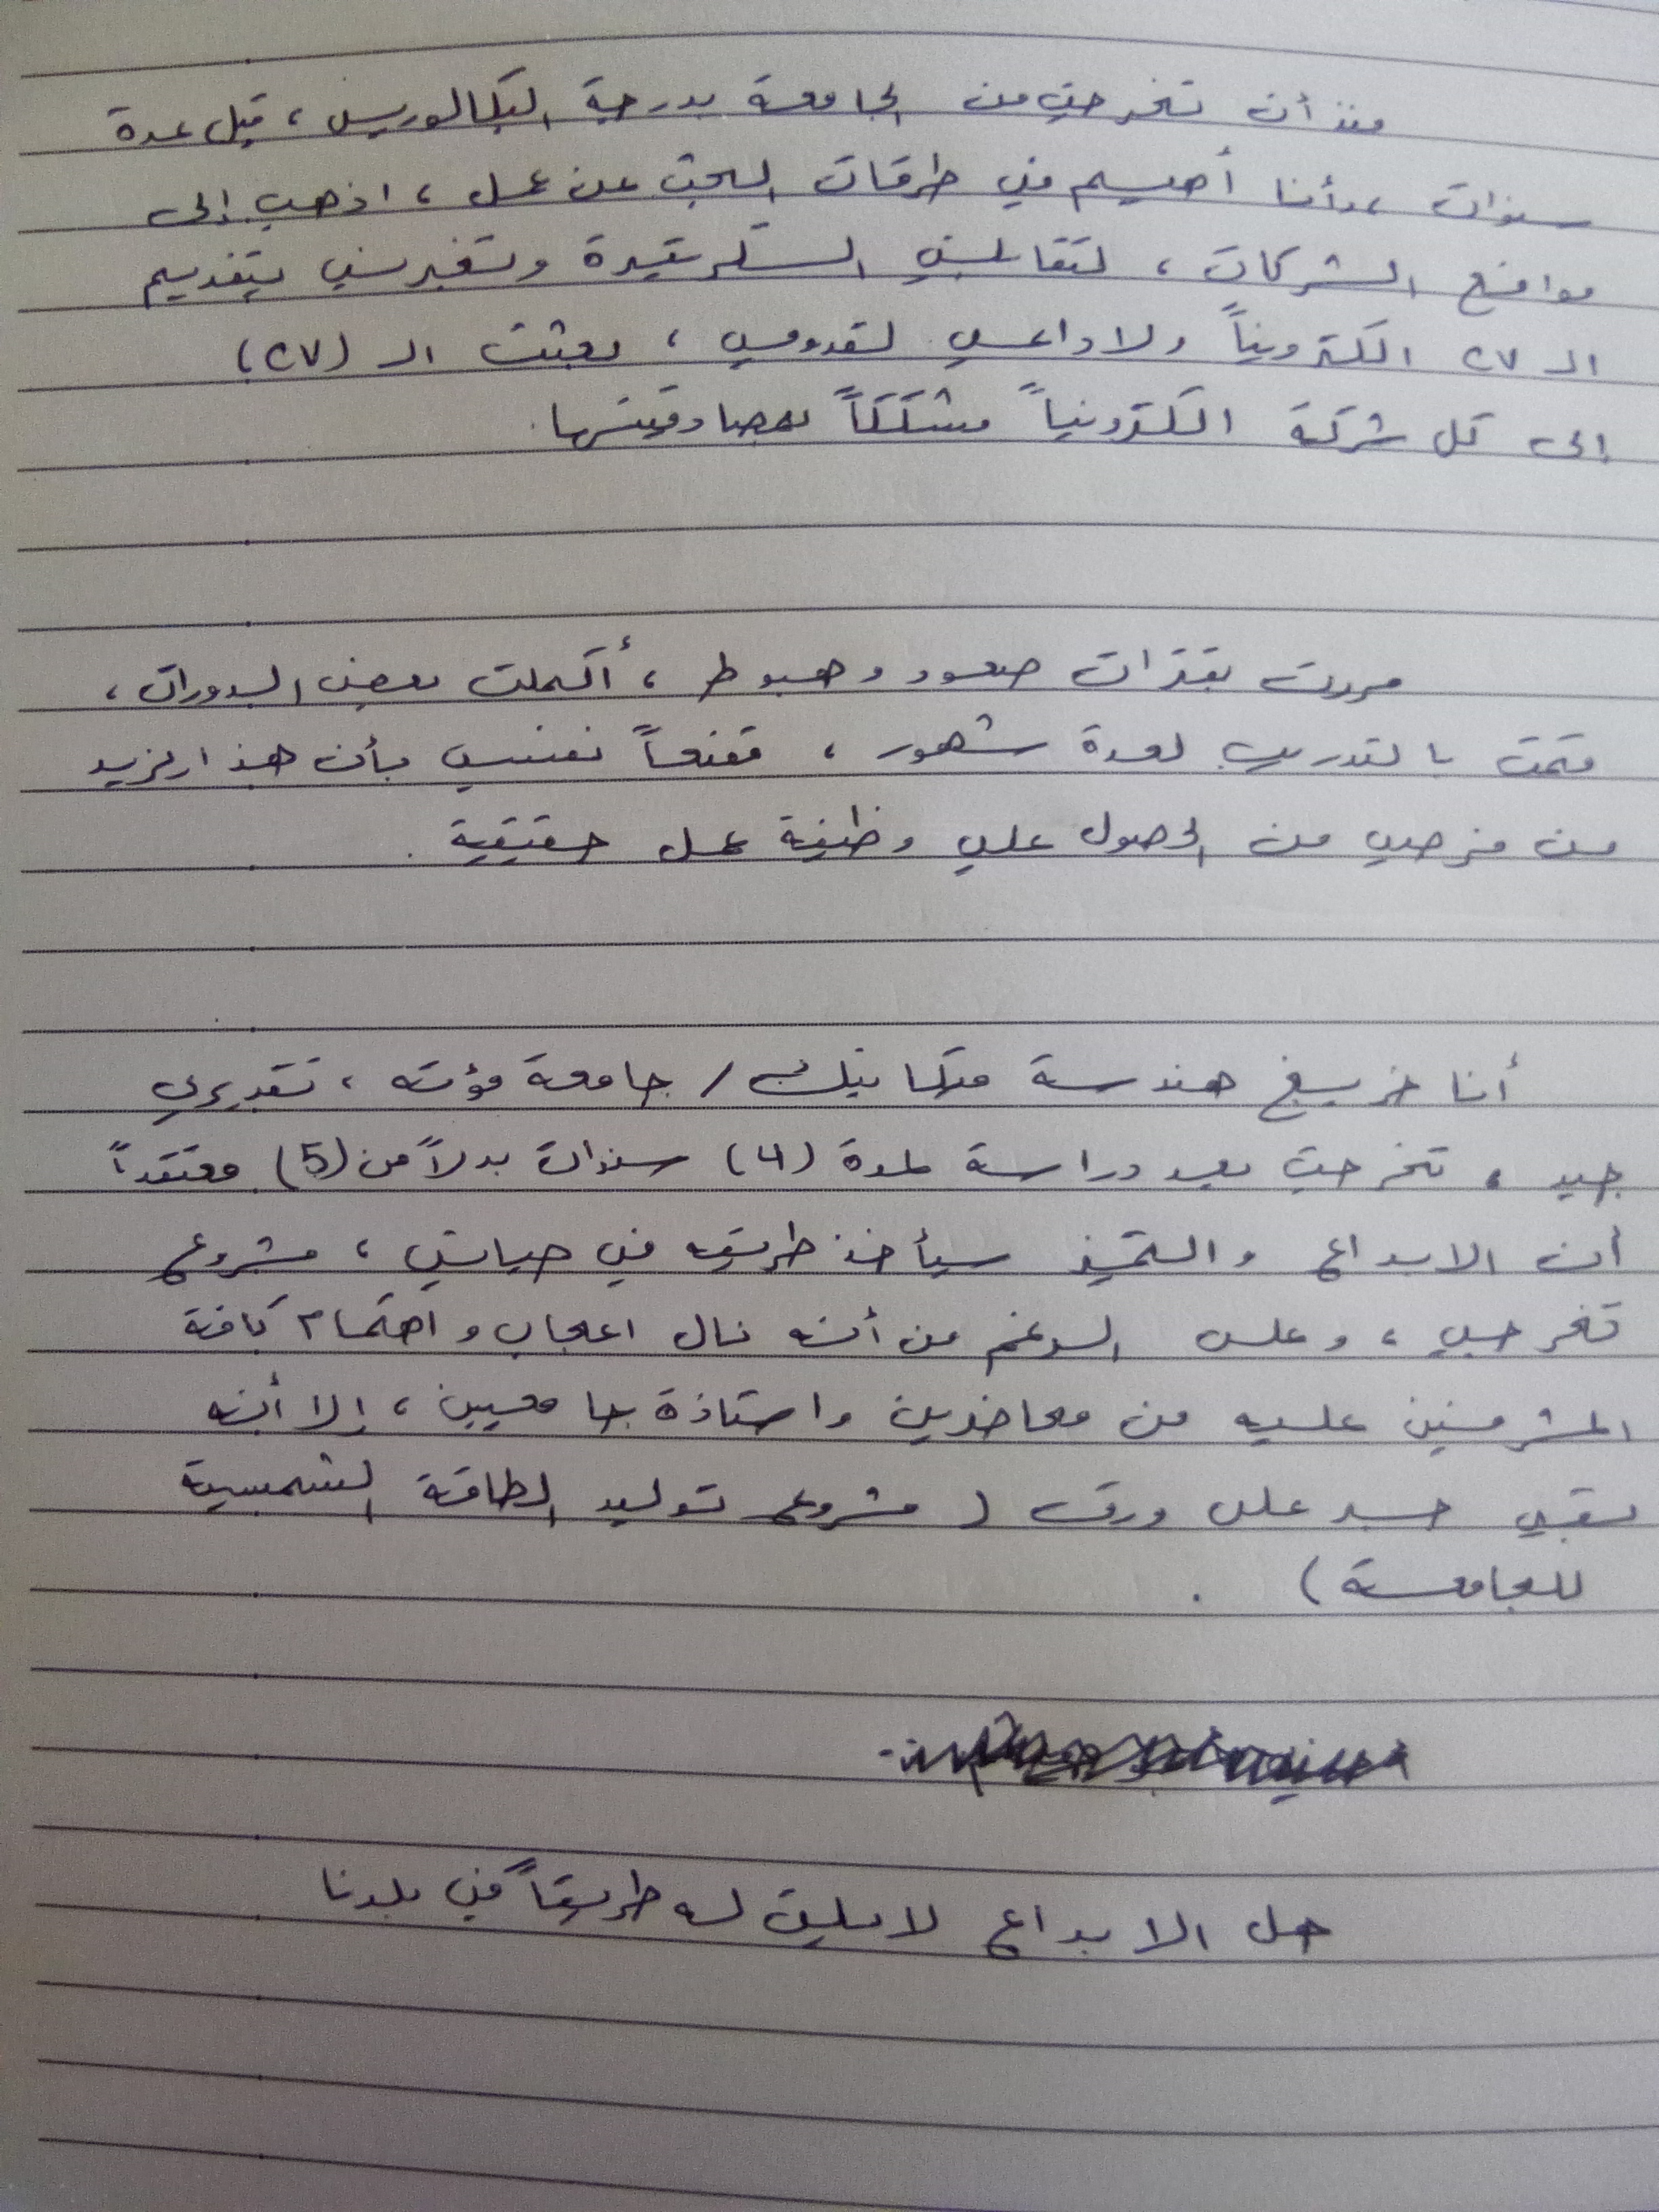 منذ أن تخرجت من الجامعة بدرجة البكالوريس ، قبل عدة
سنوات ، وأنا أهيم في طرقات البحث عن عمل ، اذهب إلى
مواقع الشركات ، لتقابلني السكرتيرة وتخبرني بتقديم
الـ CV الكترونياً ولا داعي لقدومي ، بعثت الـ (CV)
إلى كل شركة الكترونياً مشككاً بمصادقيتها .
مررت بفترات صعود وهبوط ، أكملت بعض الدورات ،
قمت بالتدريب لعدة شهور ، مقنعاً نفسي بأن هذا يزيد
من فرصي من الحصول على وظيفة عمل حقيقية .
أنا خريج هندسة ميكانيك / جامعة مؤته ، تقديري
جيد ، تخرجت بعد دراسة لمدة (4) سنوات بدلاً من (5) معتقداً
أن الابداع والتميز سيأخذ طريقه في حياتي ، مشروع
تخرجي ، وعلى الرغم من أنه نال اعجاب واهتمام كافة
المشرفين عليه من محاضرين واستاذة جامعيين ، إلا أنه
بقي حبر على ورق ( مشروع توليد الطاقة الشمسية
للجامعة ) .
هل الابداع لا يليق له طريقاً في بلدنا